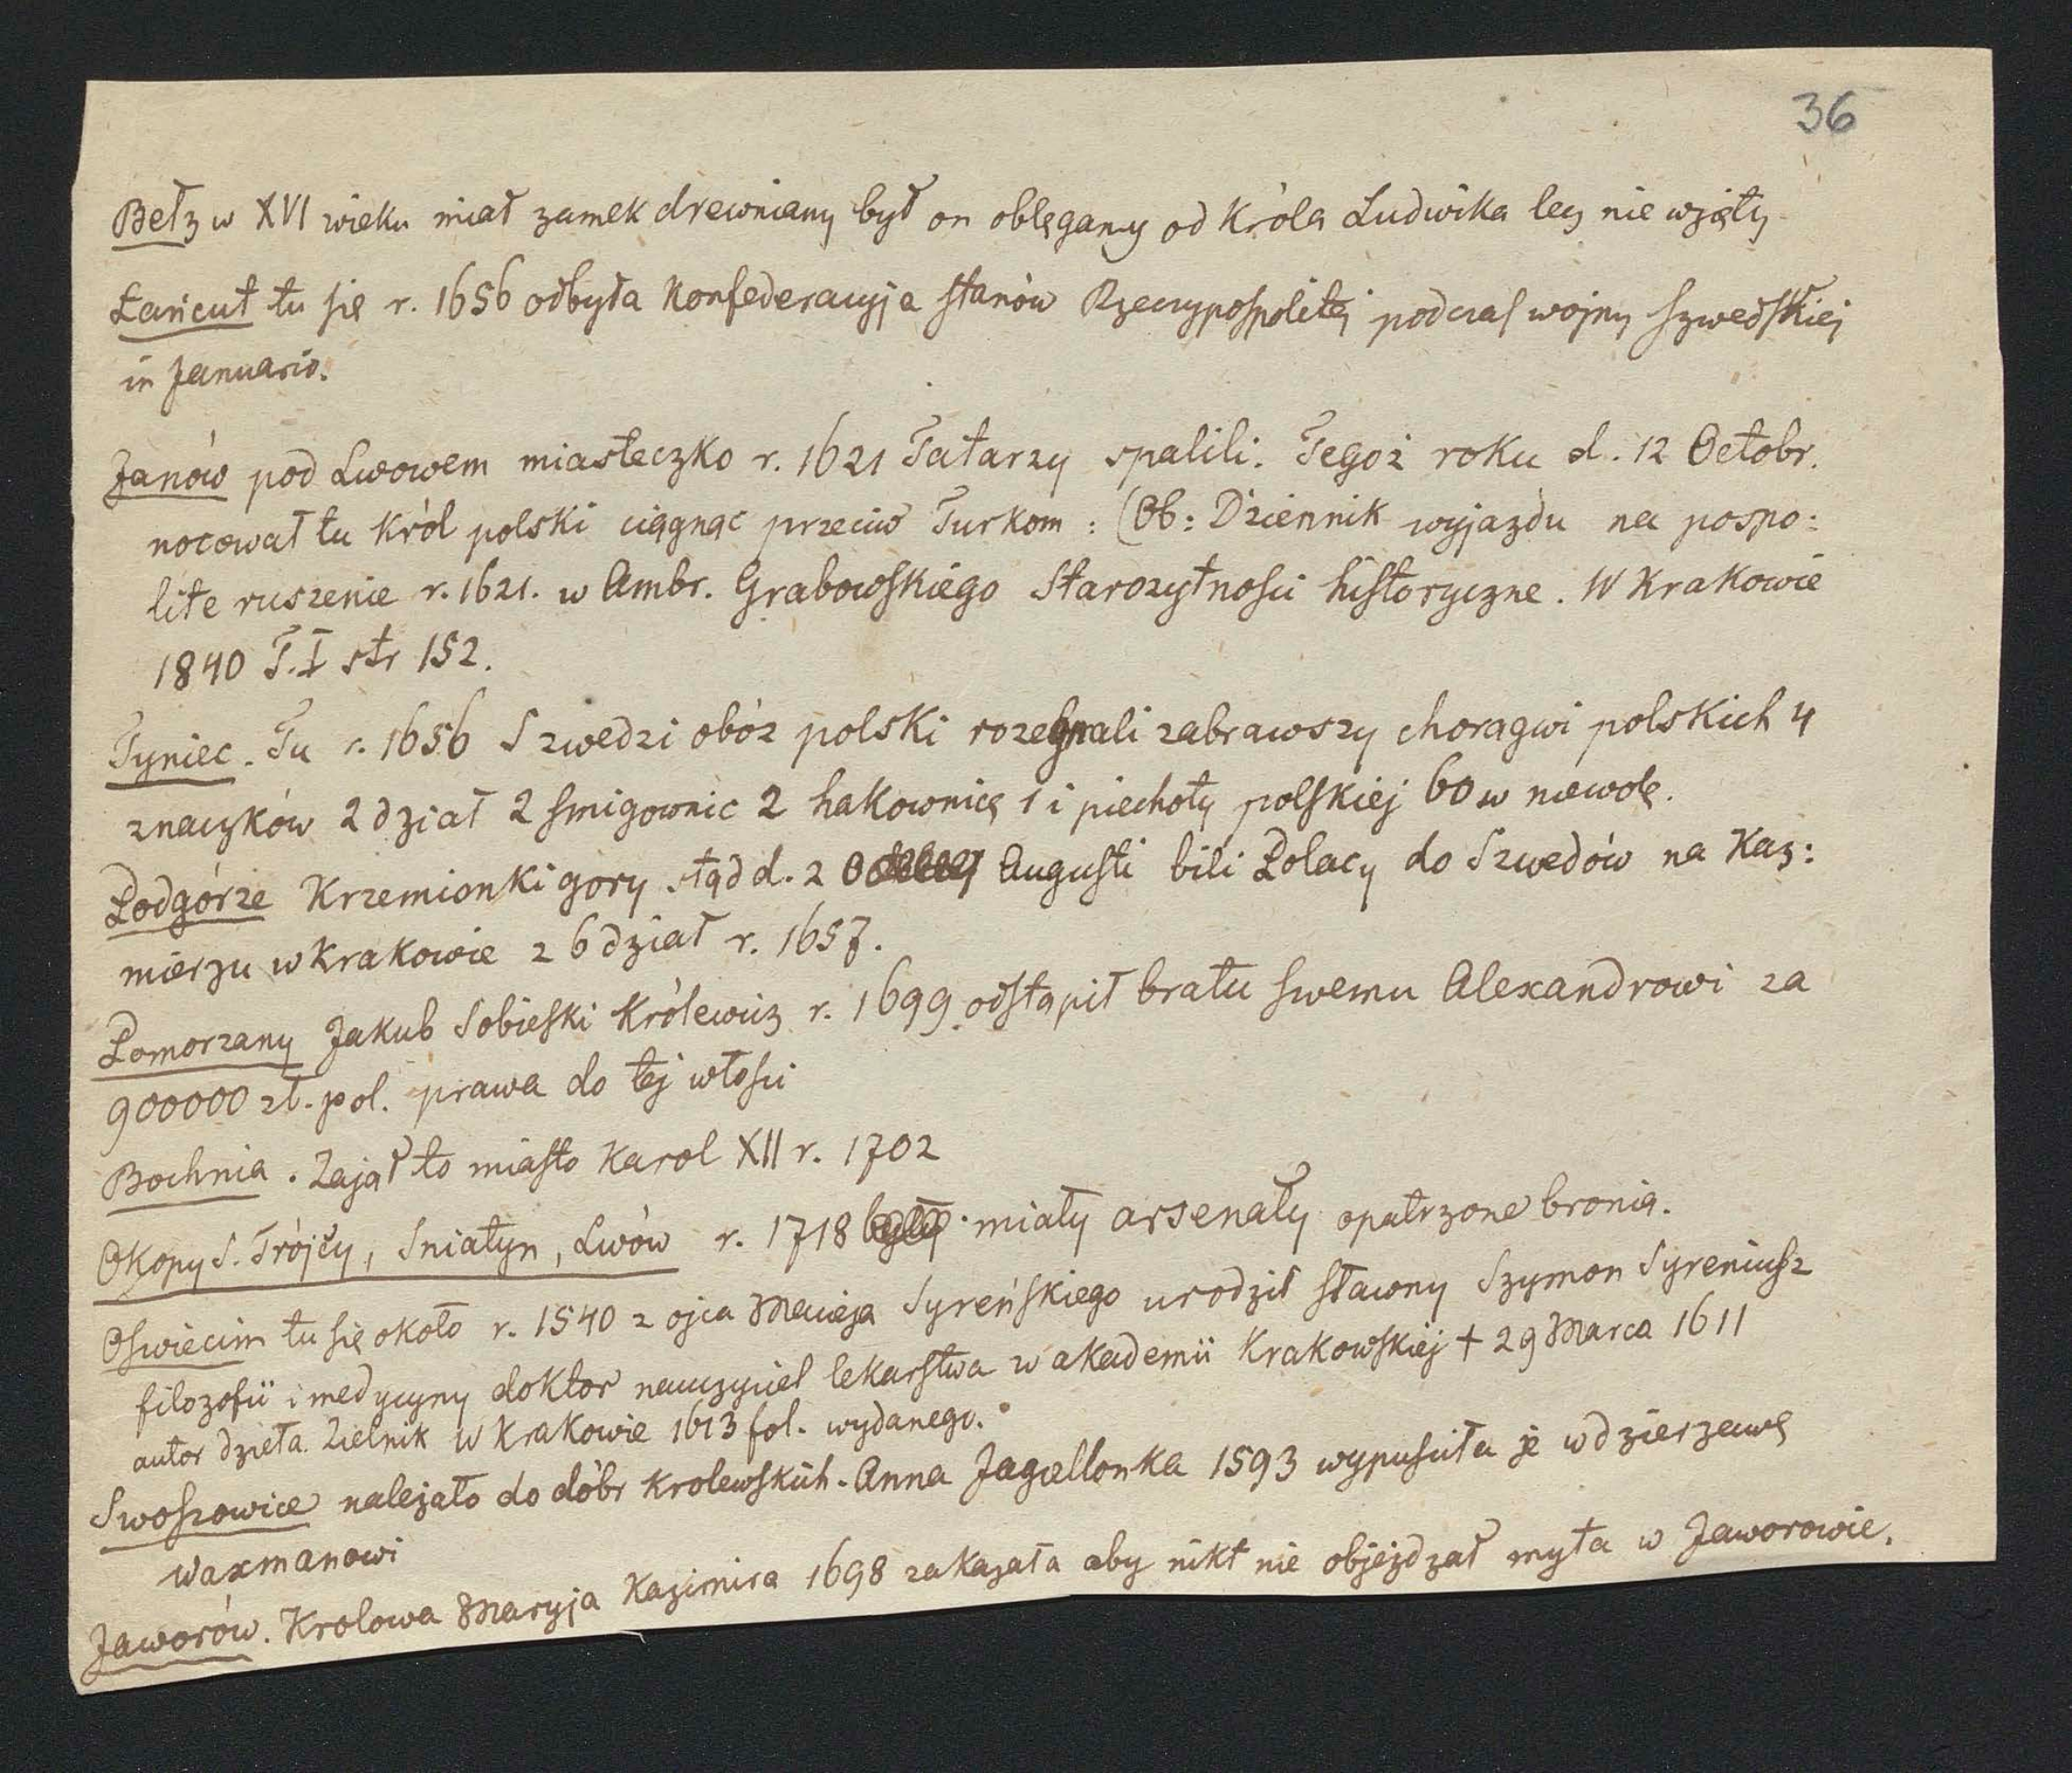 36
Bełz w XVI wieku miał zamek drewniany był on oblęgany od Króla Ludwika lecz nie wzięty
Łańcut tu się r. 1656 odbyła Konfederacyja stanów Rzeczypospolitej podczas wojny szwedzkiej
in Januario.
Janów pod Lwowem miasteczko r. 1621 Tatarzy spalili. Tegoż roku d. 12 Octobr.
nocował tu Król polski ciągnąc przeciw Turkom : (Ob: Dziennik wyjazdu na pospo:
lite ruszenie r. 1621. w Ambr. Grabowskiego Starożytności historyczne. W Krakowie
1840 T.I str 152.
Tyniec. Tu r. 1656 Szwedzi obóz polski rozegnali zabrawszy chorągwi polskich 4
znaczków 2 dział 2 smigownic 2 hakownicę 1 i piechoty polskiej 60 w niewolę.
Podgórze Krzemionki gory stąd d. 2 Augusti bili Polacy do Szwedów na Kaz:
mierzu w Krakowie z 6 dział r. 1657.
Pomorzany Jakub Sobieski Królewicz r. 1699 odstąpił bratu swemu Alexandrowi za
900000 zł. pol. prawa do tej włości
Bochnia. Zajął to miasto Karol XII r. 1702
Okopy S. Trójcy, Sniatyn, Lwów r. 1718 były miały arsenały opatrzone bronią.
Oswiecim tu się około r. 1540 z ojca Macieja Syreńskiego urodził sławny Szymon Syreniusz
filozofii i medycyny doktor nauczyciel lekarstwa w akademii Krakowskiej † 29 Marca 1611
autor dzieła Zielnik W Krakowie 1613 fol. wydanego.
Swoszowice należało do dóbr krolewskich. Anna Jagiellonka 1593 wypusciła je w dzierzawę
Waxmanowi
Jaworów. Krolowa Maryja Kazimira 1698 zakazała aby nikt nie objeżdzał myta w Jaworowie.